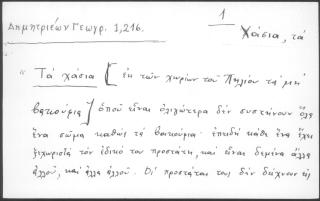 Δημητριέων Γεωγρ. 1,216.
1
Χάσια, τὰ
"Τὰ χάσια [ἐκ τῶν χωρίων τοῦ Πηλίου τὰ μὴ
βακούφια] ὁποῦ εἶναι ὀλιγώτερα δὲν συστήνουν ὅλα
ἕνα σῶμα καθὼς τὰ βακούφια· ἐπειδὴ κάθε ἕνα ἔχει
ξεχωριστὰ τὸν ἐδικό του προστάτη, καὶ εἶναι δεμένα ἄλλα
ἀλλοῦ, καὶ ἄλλα ἀλλοῦ. Οἱ προστάται τους δὲν δείχνουν εἰς